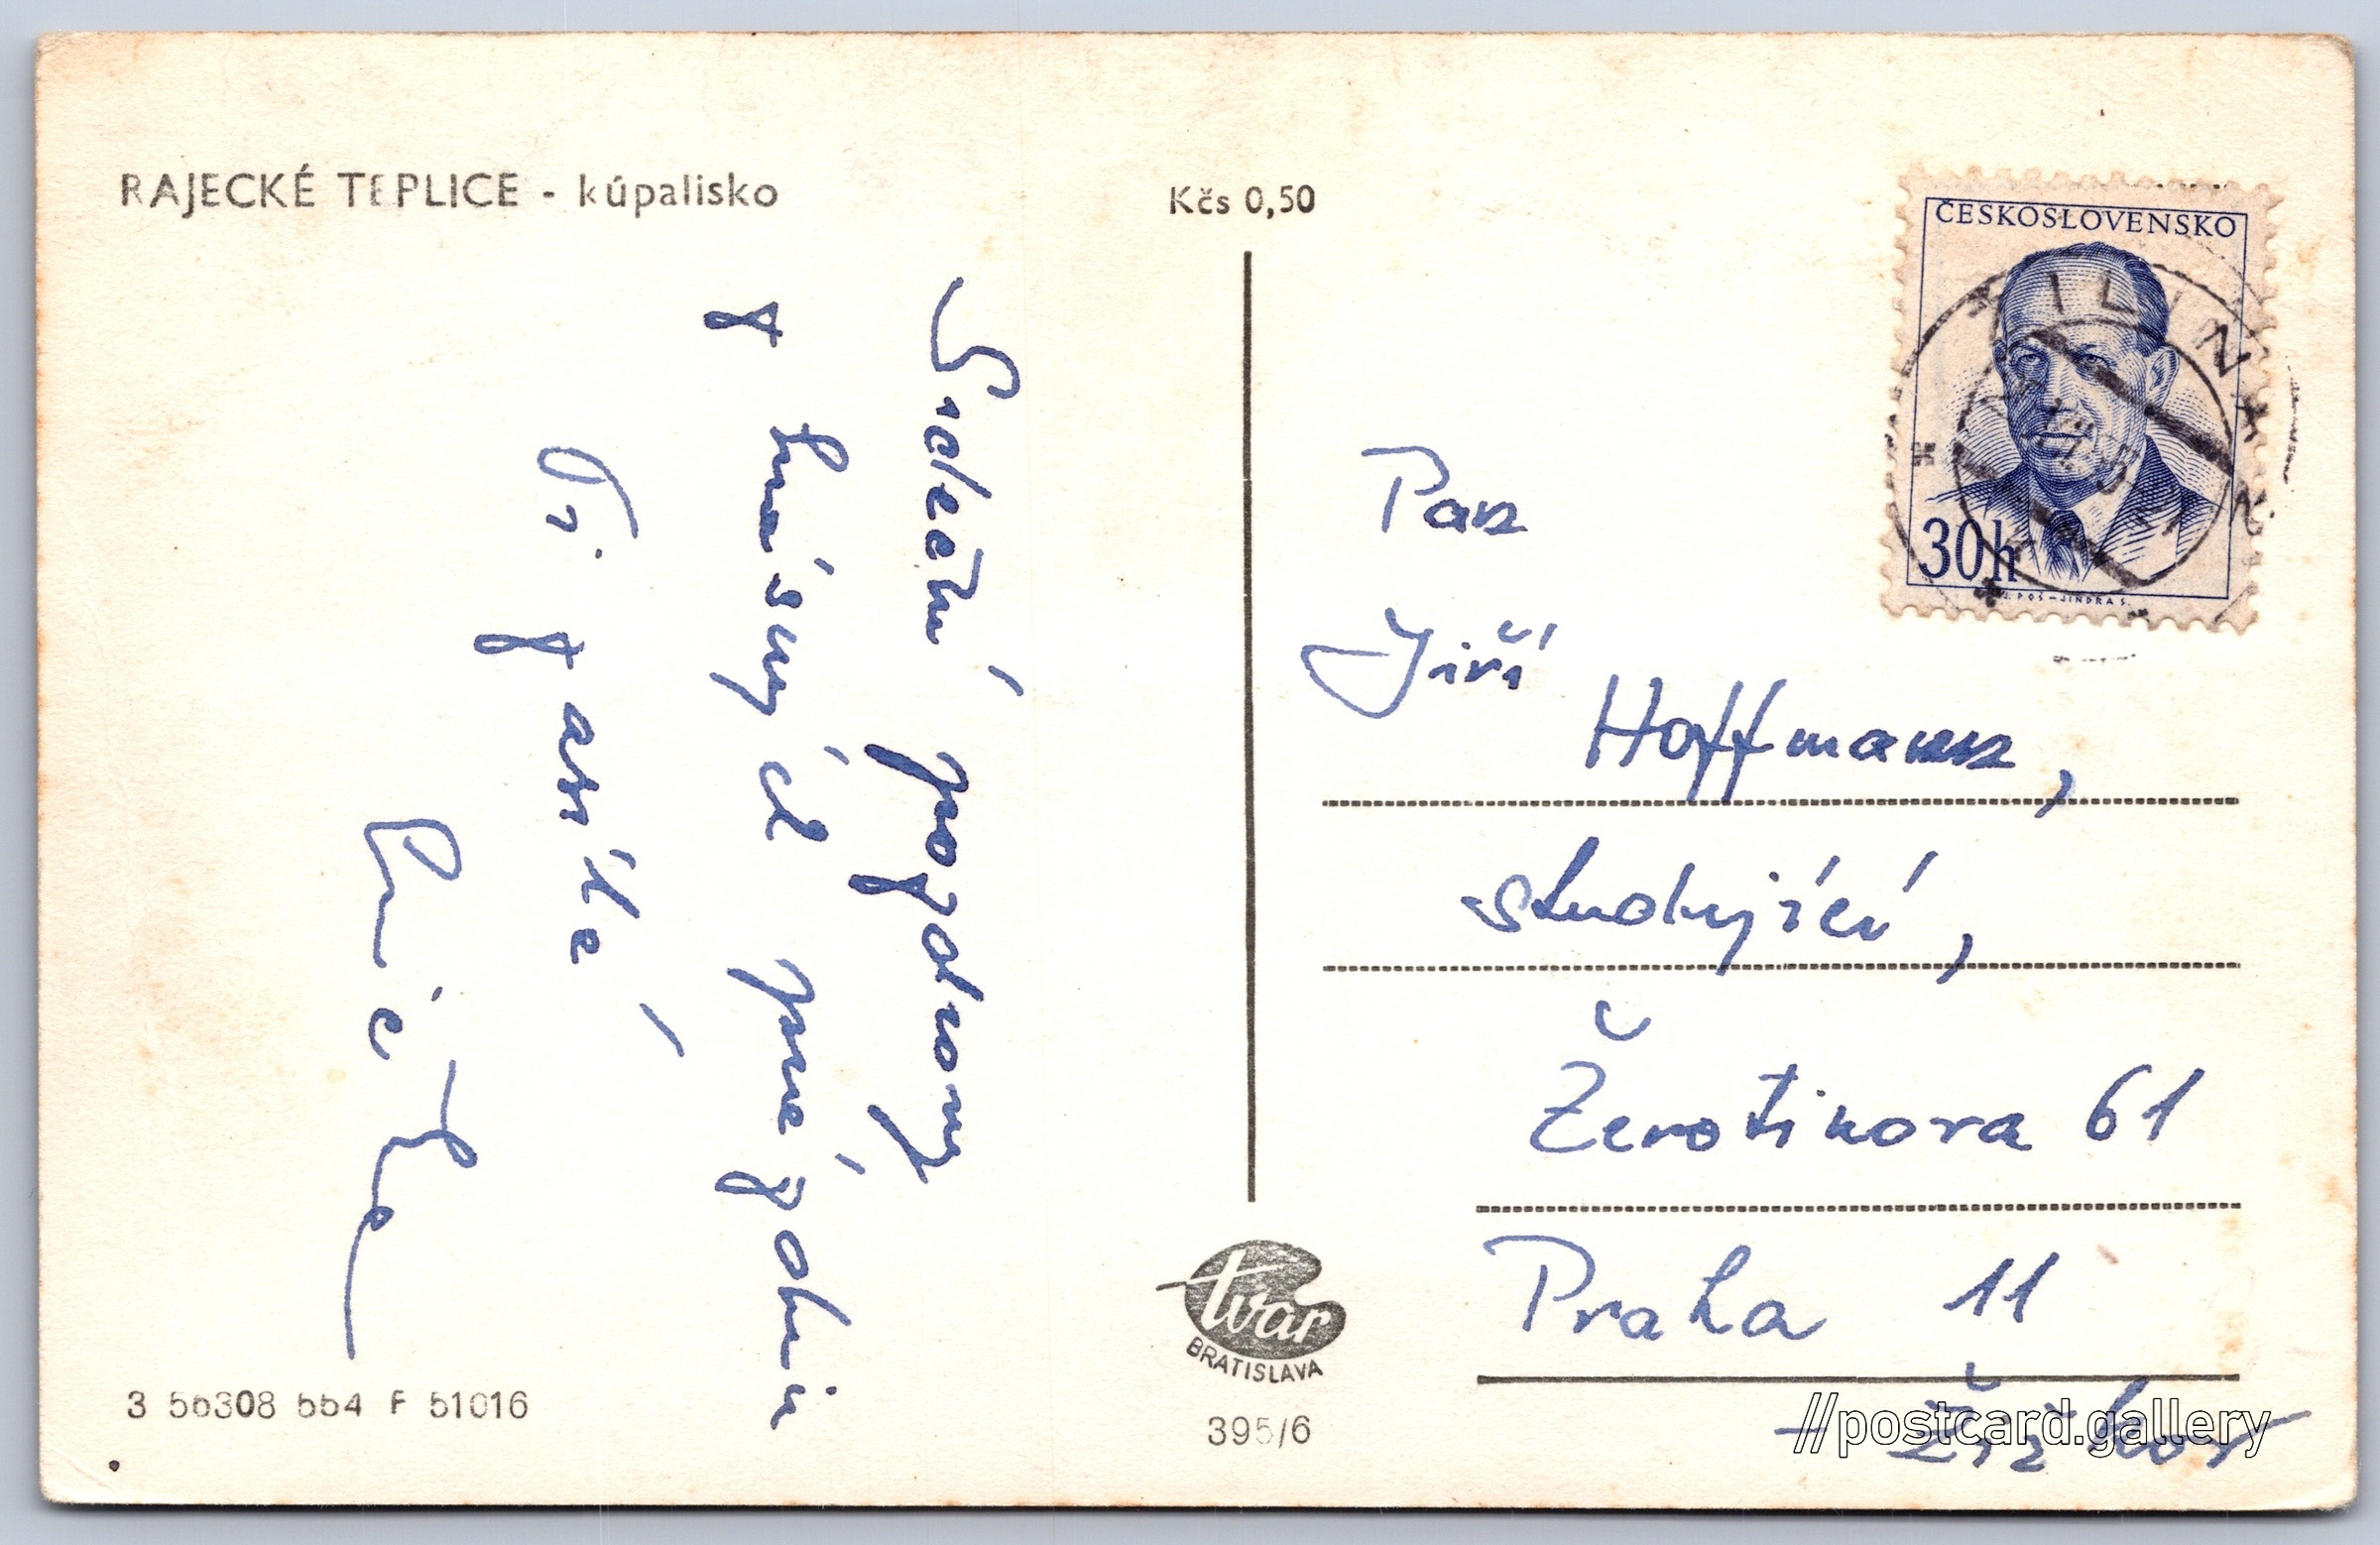 RAJECKÉ TEPLICE - kúpalisko
Kčs 0,50
ČESKOSLOVENSKO
30h
J. POŠ - JINDRA S.
ŽILINA
Srdeční pozdravy
z krásných prázdnin
Ti zasílá
Pan
Jiří
Hoffmann,
studující,
Žerotínova 61
Praha 11
- Žižkov
tvar
BRATISLAVA
395/6
3 56308 554 F 51016
//postcard.gallery